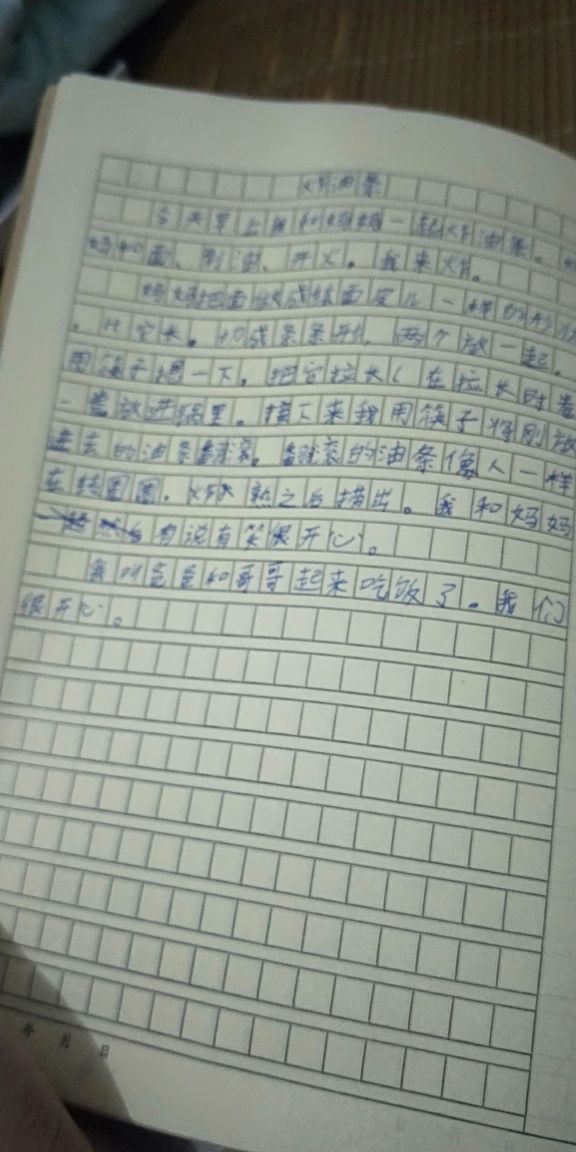 炸油条
今天早上我和妈妈一起炸油条。
妈和面、倒油、开火。我来炸。
妈妈把面做成给面皮儿一样的
。比它长。切成条条形，两个放一起，
用筷子摁一下，把它拉长（在拉长时卷
一卷放进锅里。接下来我用筷子将刚放
进去的油条翻滚。翻滚的油条像人一样
在转圈圈。熟之后捞出。我和妈妈
有说有笑很开心。
我叫爸爸和哥哥起来吃饭了。我们
很开心。
年 月 日